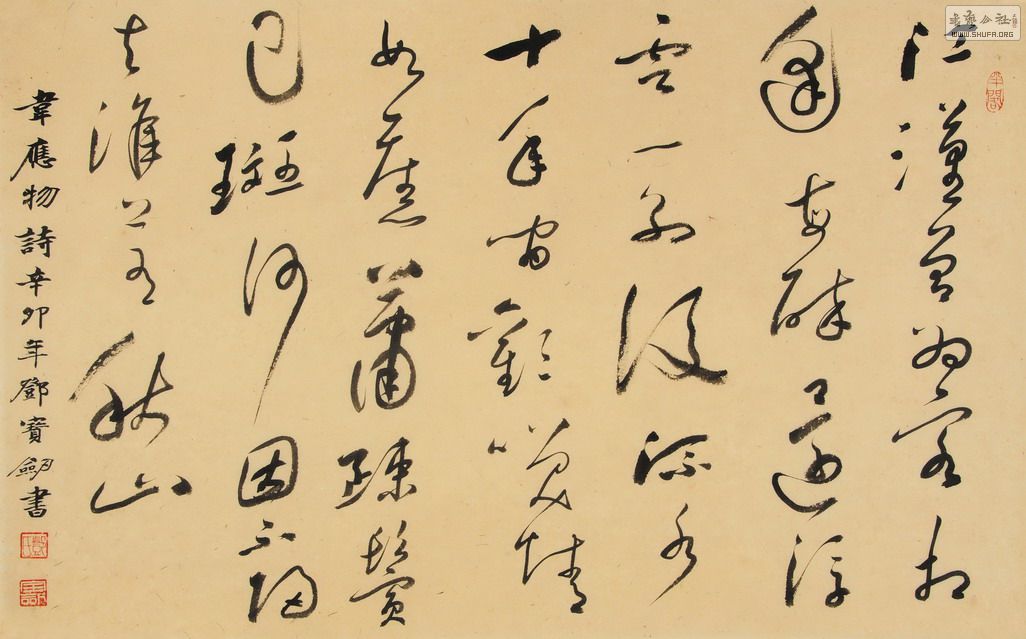 江漢曾為客相
逢每醉還浮
雲一別後流水
十年間歡笑情
如舊蕭疏鬢
已斑何因不歸
去淮上有秋山
韋應物詩辛卯年鄧寶劍書
書藝公社
WWW.SHUFA.ORG